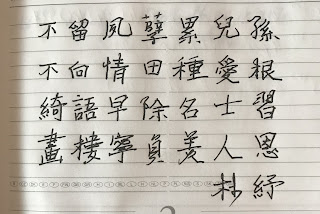 不留夙孽累兒孫
不向情田種愛根
綺語早除名士習
畫樓寧負美人恩
朴紓